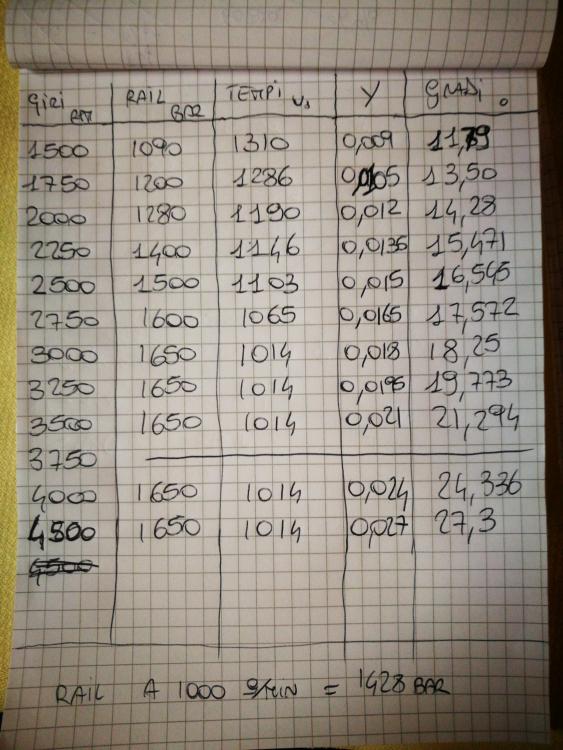 GIRI RPM RAIL BAR TEMPI Us Y GRADI °
1500 1090 1310 0,009 11,79
1750 1200 1286 0,0105 13,50
2000 1280 1190 0,012 14,28
2250 1400 1146 0,0135 15,471
2500 1500 1103 0,015 16,545
2750 1600 1065 0,0165 17,572
3000 1650 1014 0,018 18,25
3250 1650 1014 0,0195 19,773
3500 1650 1014 0,021 21,294
3750
4000 1650 1014 0,024 24,336
4500 1650 1014 0,027 27,3
RAIL A 1000 g/min = 1428 BAR